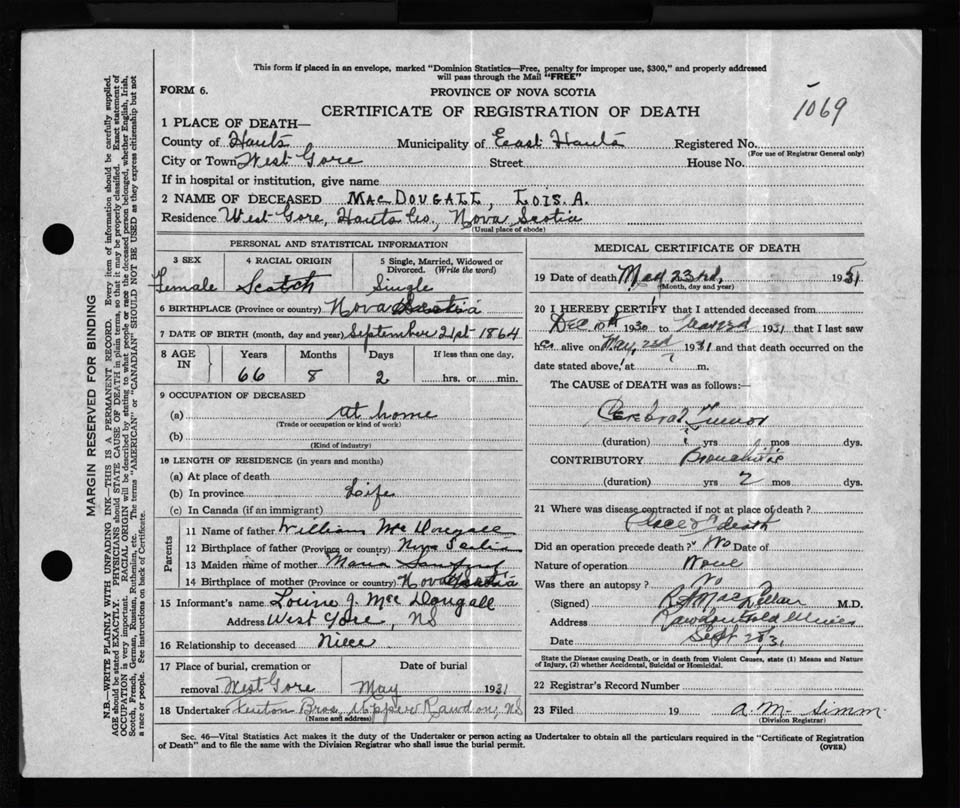 This form if placed in an envelope, marked "Dominion Statistics—Free, penalty for improper use, $300," and properly addressed
will pass through the Mail "FREE"
FORM 6.
PROVINCE OF NOVA SCOTIA
1069
CERTIFICATE OF REGISTRATION OF DEATH
1 PLACE OF DEATH—
County of Hants Municipality of East Hants Registered No.
(For use of Registrar General only)
City or Town West Gore Street House No.
If in hospital or institution, give name
2 NAME OF DECEASED MacDOUGALL, LOIS. A.
Residence West Gore, Hants Co, Nova Scotia
(Usual place of abode)
PERSONAL AND STATISTICAL INFORMATION
3 SEX
Female
4 RACIAL ORIGIN
Scotch
5 Single, Married, Widowed or
Divorced. (Write the word)
Single
6 BIRTHPLACE (Province or country) Nova Scotia
7 DATE OF BIRTH (month, day and year) September 21st 1864
8 AGE IN
Years Months Days If less than one day,
66 8 2 hrs. or min.
9 OCCUPATION OF DECEASED
(a) at home
(Trade or occupation or kind of work)
(b)
(Kind of industry)
10 LENGTH OF RESIDENCE (in years and months)
(a) At place of death
(b) In province Life
(c) In Canada (if an immigrant)
Parents
11 Name of father William Mc Dougall
12 Birthplace of father (Province or country) Nova Scotia
13 Maiden name of mother Maria
14 Birthplace of mother (Province or country) Nova Scotia
15 Informant's name J. Mc Dougall
Address West Gore, NS
16 Relationship to deceased Niece
17 Place of burial, cremation or Date of burial
removal West Gore May 1931
18 Undertaker Fenton Bros, Upper Rawdon, NS
(Name and address)
MEDICAL CERTIFICATE OF DEATH
19 Date of death May 23rd, 1931
(Month, day and year)
20 I HEREBY CERTIFY that I attended deceased from
Dec 10th 1930 to 1931 that I last saw
her alive on May, 1931 and that death occurred on the
date stated above, at ? m.
The CAUSE OF DEATH was as follows:
Cerebral Tumor
(duration) ? yrs mos dys.
CONTRIBUTORY Bronchitis
(duration) yrs 2 mos dys.
21 Where was disease contracted if not at place of death?
Place of death
Did an operation precede death? No Date of
Nature of operation None
Was there an autopsy? No
(Signed) M.D.
Address Rawdon Gold Mines
Date Sept 31
State the Disease causing Death, or in death from Violent Causes, state (1) Means and Nature
of Injury, (2) whether Accidental, Suicidal or Homicidal.
22 Registrar's Record Number
23 Filed 19 A. M. Simm
(Division Registrar)
Sec. 46—Vital Statistics Act makes it the duty of the Undertaker or person acting as Undertaker to obtain all the particulars required in the "Certificate of Registration
of Death" and to file the same with the Division Registrar who shall issue the burial permit.
(OVER)
MARGIN RESERVED FOR BINDING
N.B.—WRITE PLAINLY WITH UNFADING INK—THIS IS A PERMANENT RECORD. Every item of information should be carefully supplied.
AGE should be stated EXACTLY. PHYSICIANS should STATE CAUSE OF DEATH in plain terms, so that it may be properly classified. Exact statement of
OCCUPATION is very important. RACIAL ORIGIN will be described by stating to what people or race the deceased person belonged, whether English, Irish,
Scotch, French, German, Russian, Ruthenian, etc. The terms "AMERICAN" or "CANADIAN" SHOULD NOT BE USED as they express citizenship but not
a race or people. See instructions on back of Certificate.